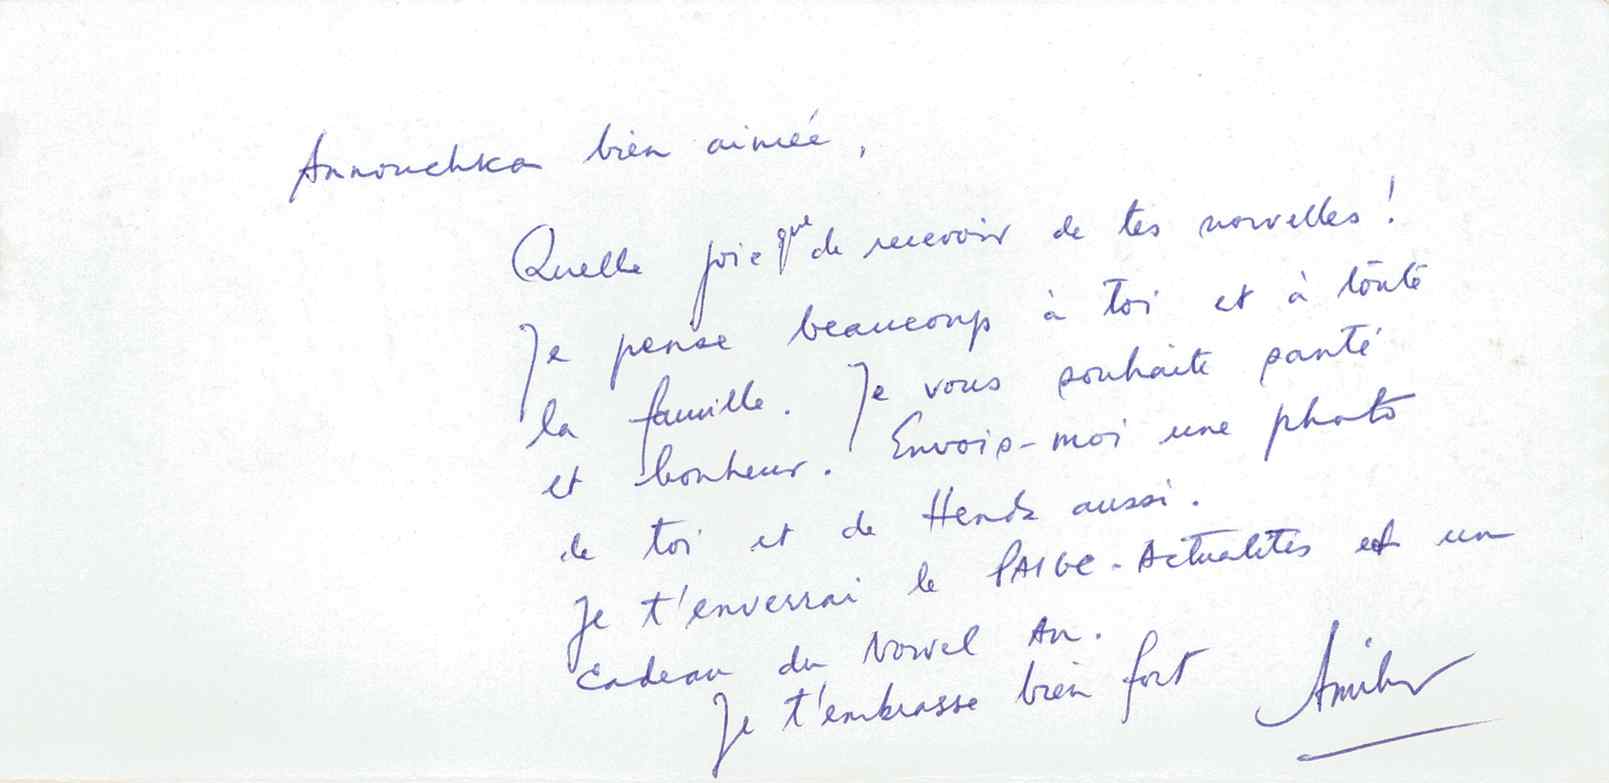 Annouchka bien aimée,
Quelle joie que de recevoir de tes nouvelles !
Je pense beaucoup à toi et à toute
la famille. Je vous souhaite santé
et bonheur. Envois-moi une photo
de toi et de Henda aussi.
Je t'enverrai le PAIGC-Actualités et un
cadeau du Nouvel An.
Je t'embrasse bien fort